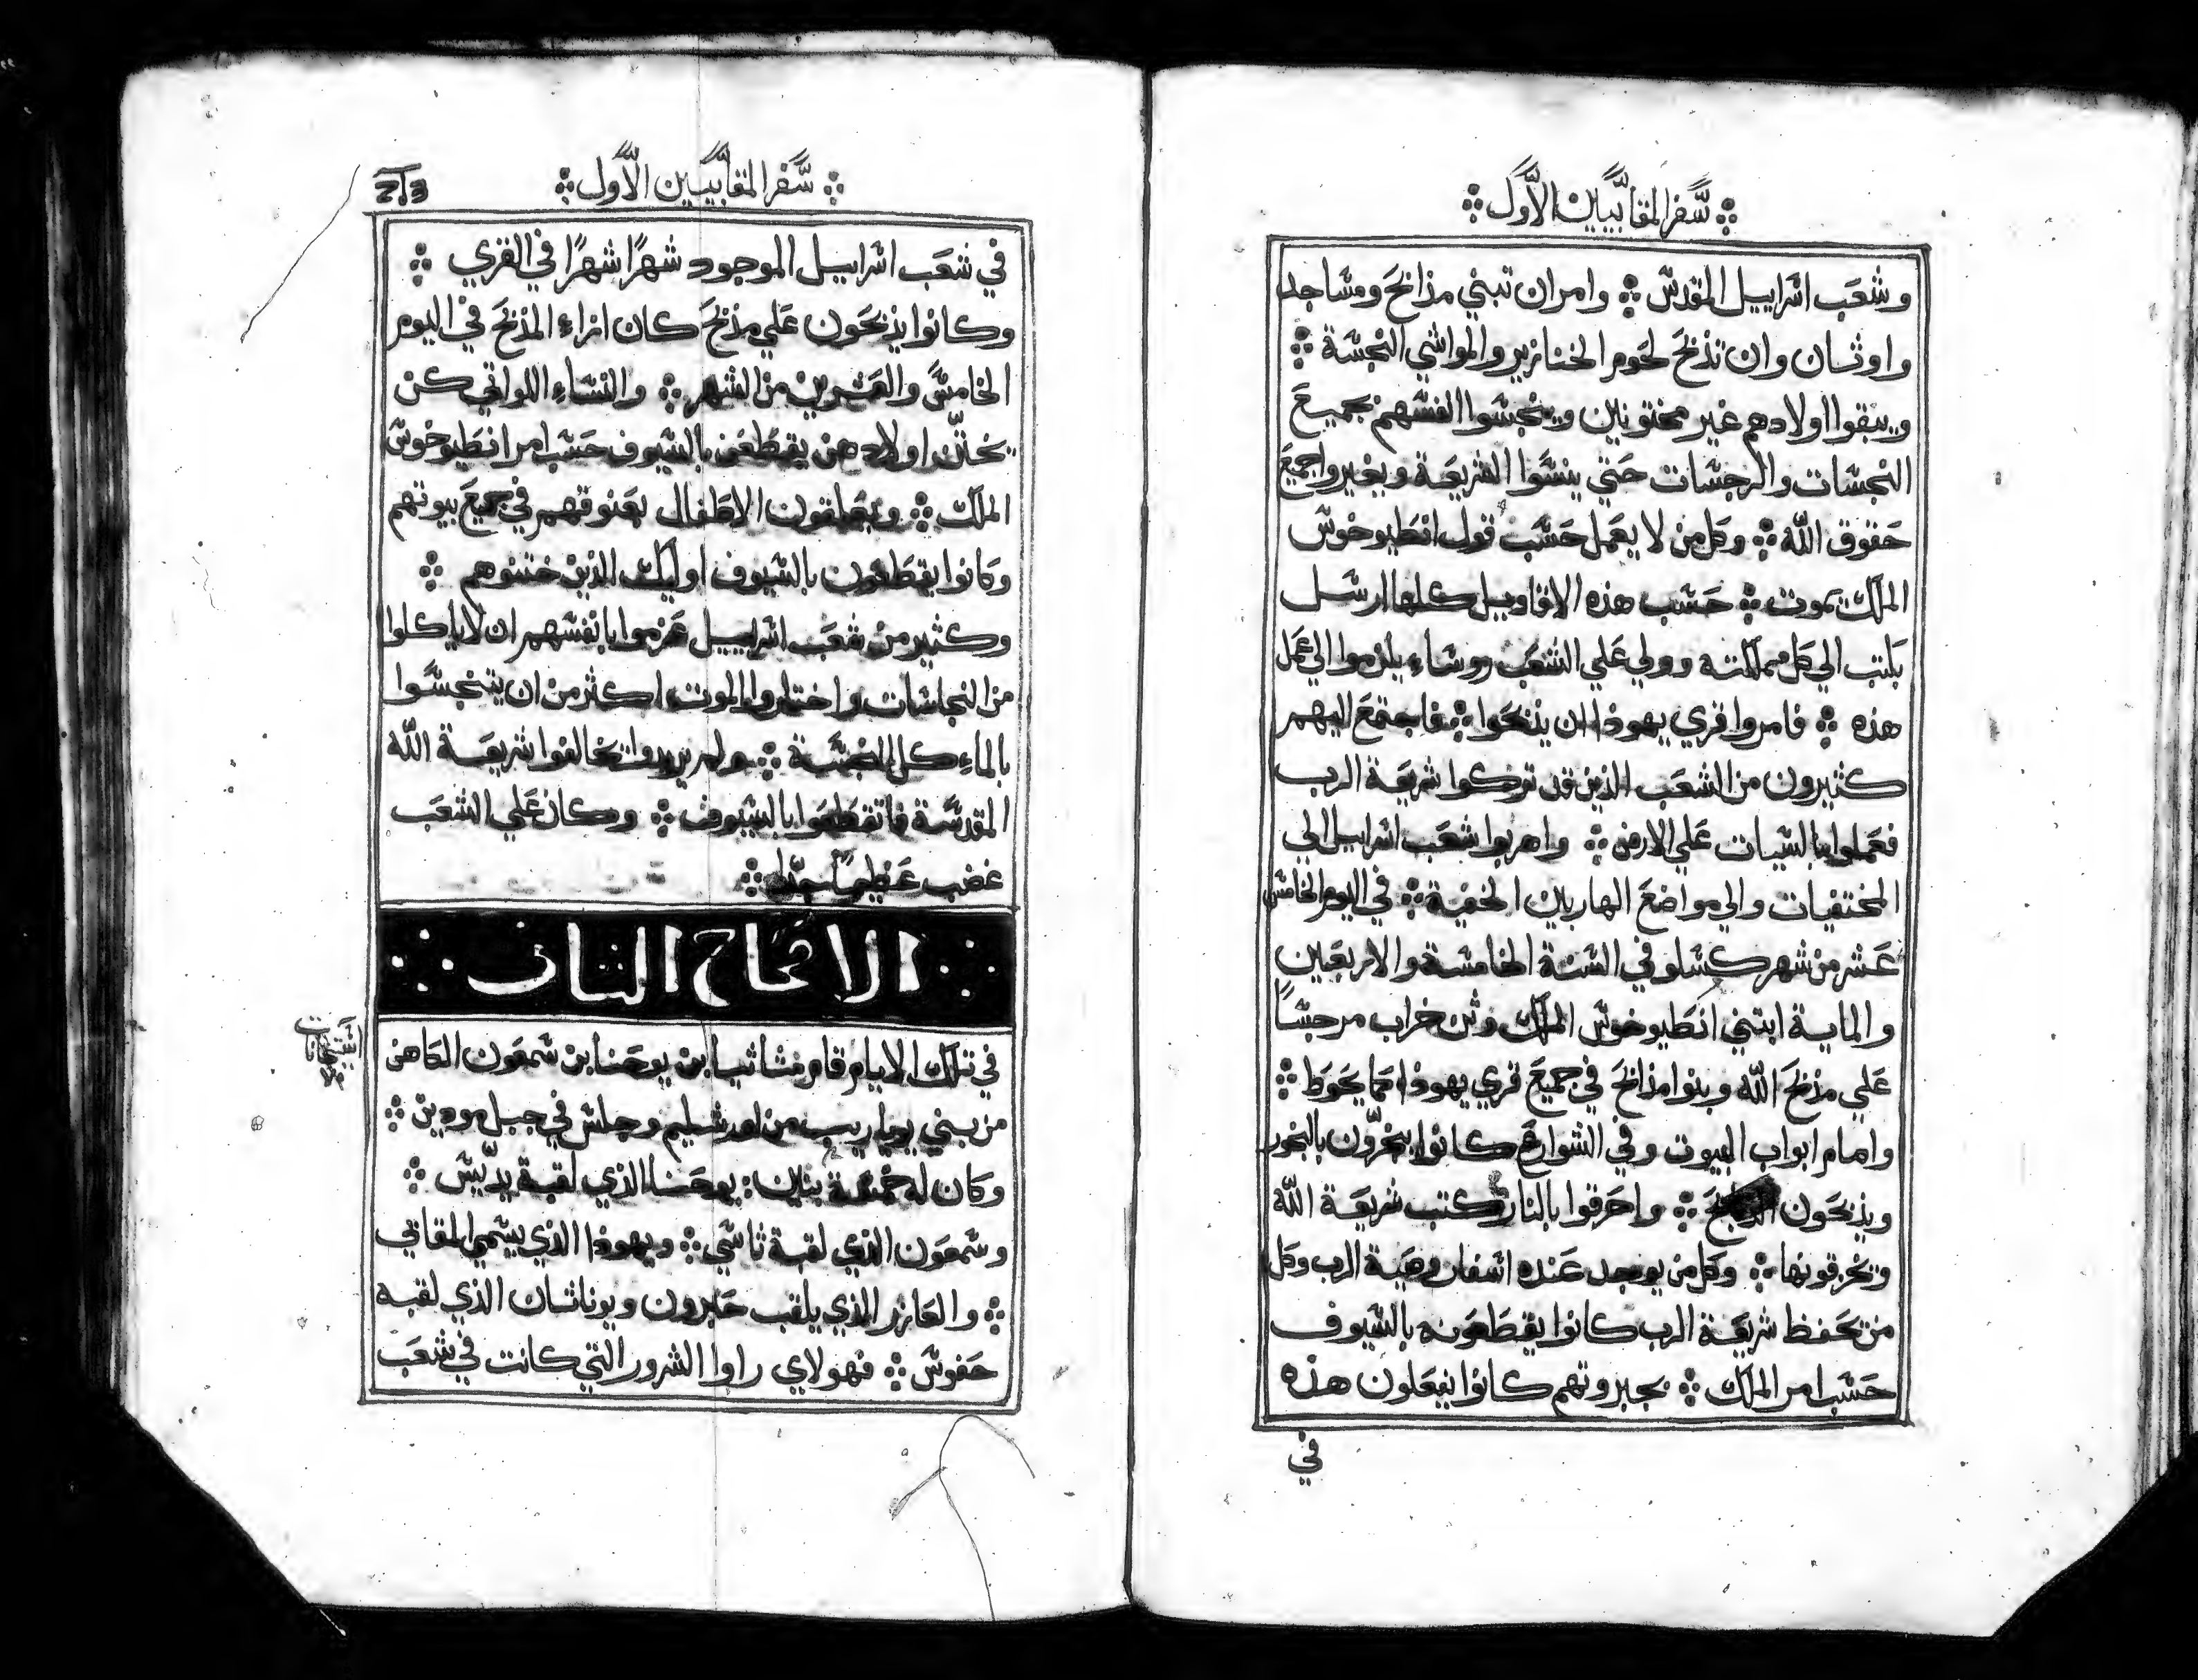 ۞ سَّفر المقابَّيين الاَّول ۞
وشعَب اسَّراييل المقدسَّ ۞ وامر ان تبني مذابحَ ومسَّاجد
واوثان وان تذبحَ لحَوم الخنازير والمواشي النجسَّة ۞
ويبقوا اولادهم غير مختونين وينجسَّوا انفسَّهم بجميعَ
النجسَّات والرجسَّات حَتي ينسَّوا الشريعَة ويغيروا جميعَ
حَقوق الله ۞ وكل من لا يعَمل حَسَّب قول انطَيوخوسَّ
الملك يموت ۞ حَسَّب هذه الاقاويل كلها ارسَّل
بكتب الي كل مملكته وولي عَلي الشعَب روسَّاء يلزموا الي عَمل
هذه ۞ فامروا قري يهوذا ان يذبحَوا ۞ فاجتمعَ اليهم
كثيرون من الشعَب الذين قد تركوا شريعَة الرب
فعَملوا بالسَّيات عَلي الارض ۞ واهربوا شعَب اسَّراييل الي
المختفيات والي مواضعَ الهاربين الخفية ۞ في اليوم الخامسَّ
عَشر من شهر كسَّلو في السَّنة الخامسَّة والاربعَين
والماية ابتني انطَيوخوسَّ الملك وثن خراب مرجسًَّا
عَلي مذبحَ الله وبنوا مذابحَ في جميعَ قري يهوذا مما يحَوطَ ۞
وامام ابواب البيوت وفي الشوارعَ كانوا يبخرّون بالبخور
ويذبحَون الذبايحَ ۞ واحَرقوا بالنار كتب شريعَة الله
وتخزقونها ۞ وكل من يوجد عَنده اسَّفار وصَية الرب وكل
من تحَفظ شريعَة الرب كانوا يقطَعَونه بالسَّيوف
حَسَّب امر الملك ۞ بجبروتهم كانوا يفعَلون هذه
في
۞ سَّفر المقابَّيين الاَّول ۞
213
في شعَب اسَّراييل الموجود شهرًا شهرًا في القري ۞
وكانوا يذبحَون عَلي مذبحَ كان ازاء المذبحَ في اليوم
الخامسَّ والعَشرين من الشهر ۞ والنسَّاء اللواتي كن
يختنّ اولادهن يقطَعَن بالسَّيوف حَسَّب امر انطَيوخوسَّ
الملك ۞ ويعَلقون الاطَفال بعَنوقهم في جميعَ بيوتهم
وكانوا يقطَعَون بالسَّيوف اوليك الذين ختنوهم ۞
وكثير من شعَب اسَّراييل عَزموا بانفسَّهم ان لا ياكلوا
من النجاسَّات واختاروا الموت اكثر من ان يتنجسَّوا
بالماكل النجسَّة ۞ ولم يريدوا تخالفوا شريعَة الله
المقدسَّة فاتقطَعَوا بالسَّيوف ۞ وكان عَلي الشعَب
غضب عَظيمًا جدًا ۞
الاصحاح الثاني
في تلك الايام قام متاثيا بن يوحَنا بن شمعَون الكاهن
من بني يوياريب من اورشليم وجلسَّ في جبل مودين ۞
وكان له خمسَّة بنين: يوحَنا الذي لقبة يدّيسَّ ۞
وسَّمعَون الذي لقبة ثاسَّي ۞ ويهوذا الذي يسَّمي المقابي
۞ والعَازر الذي يلقب حَابرون ويوناثان الذي لقبه
حَفوسَّ ۞ فهولاي راوا الشرور التي كانت في شعَب